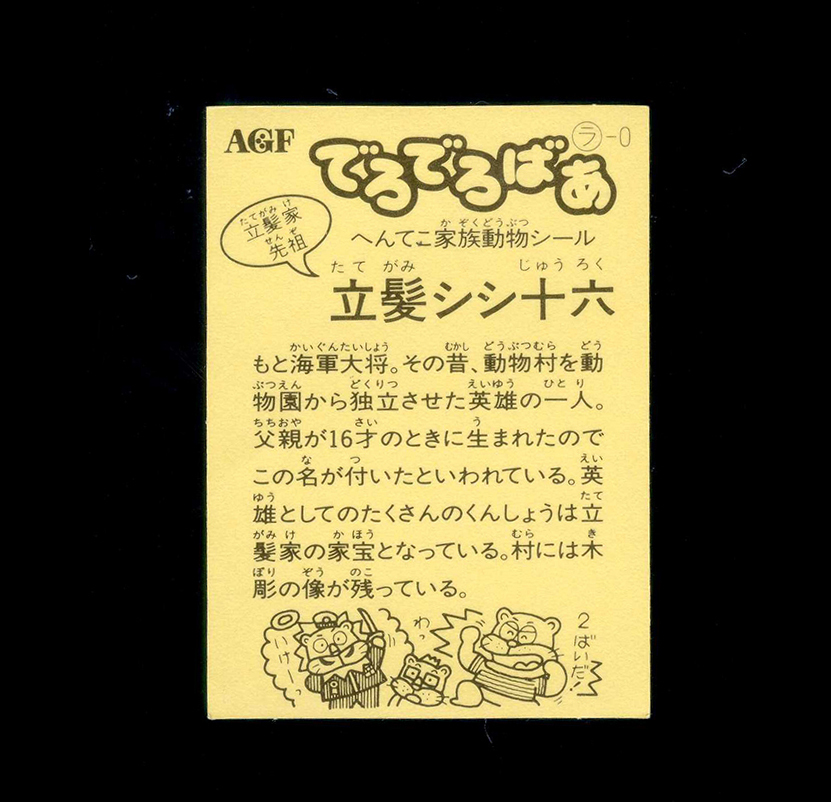 AGF
でろでろばあ
㋶-0
立髪家
先祖
へんてこ家族動物シール
立髪シシ十六
もと海軍大将。その昔、動物村を動
物園から独立させた英雄の一人。
父親が16才のときに生まれたので
この名が付いたといわれている。英
雄としてのたくさんのくんしょうは立
髪家の家宝となっている。村には木
彫の像が残っている。
いけーっ
わっ
2ばいだ!